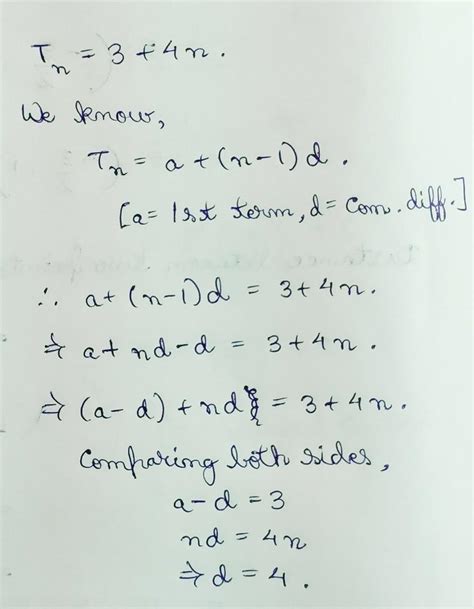 Tₙ = 3 + 4n.
We know,
Tₙ = a + (n-1) d.
[a = 1st term, d = Com. diff.]
∴ a + (n-1)d = 3 + 4n.
⇒ a + nd - d = 3 + 4n.
⇒ (a - d) + nd = 3 + 4n.
Comparing both sides,
a - d = 3
nd = 4n
⇒ d = 4.